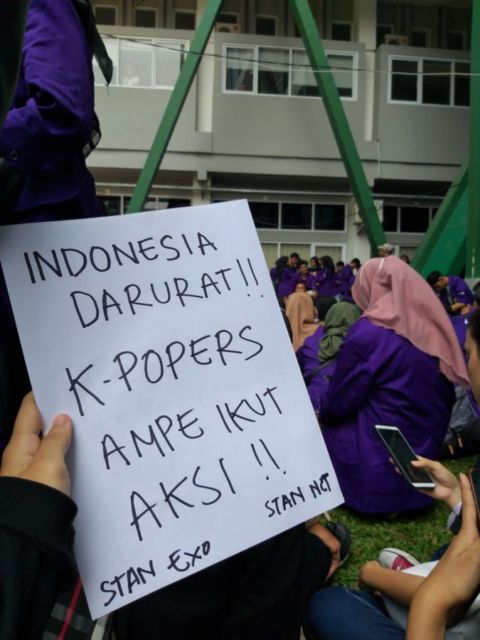 INDONESIA
DARURAT!!
K-POPERS
AMPE IKUT
AKSI!!
STAN EXO
STAN NCT